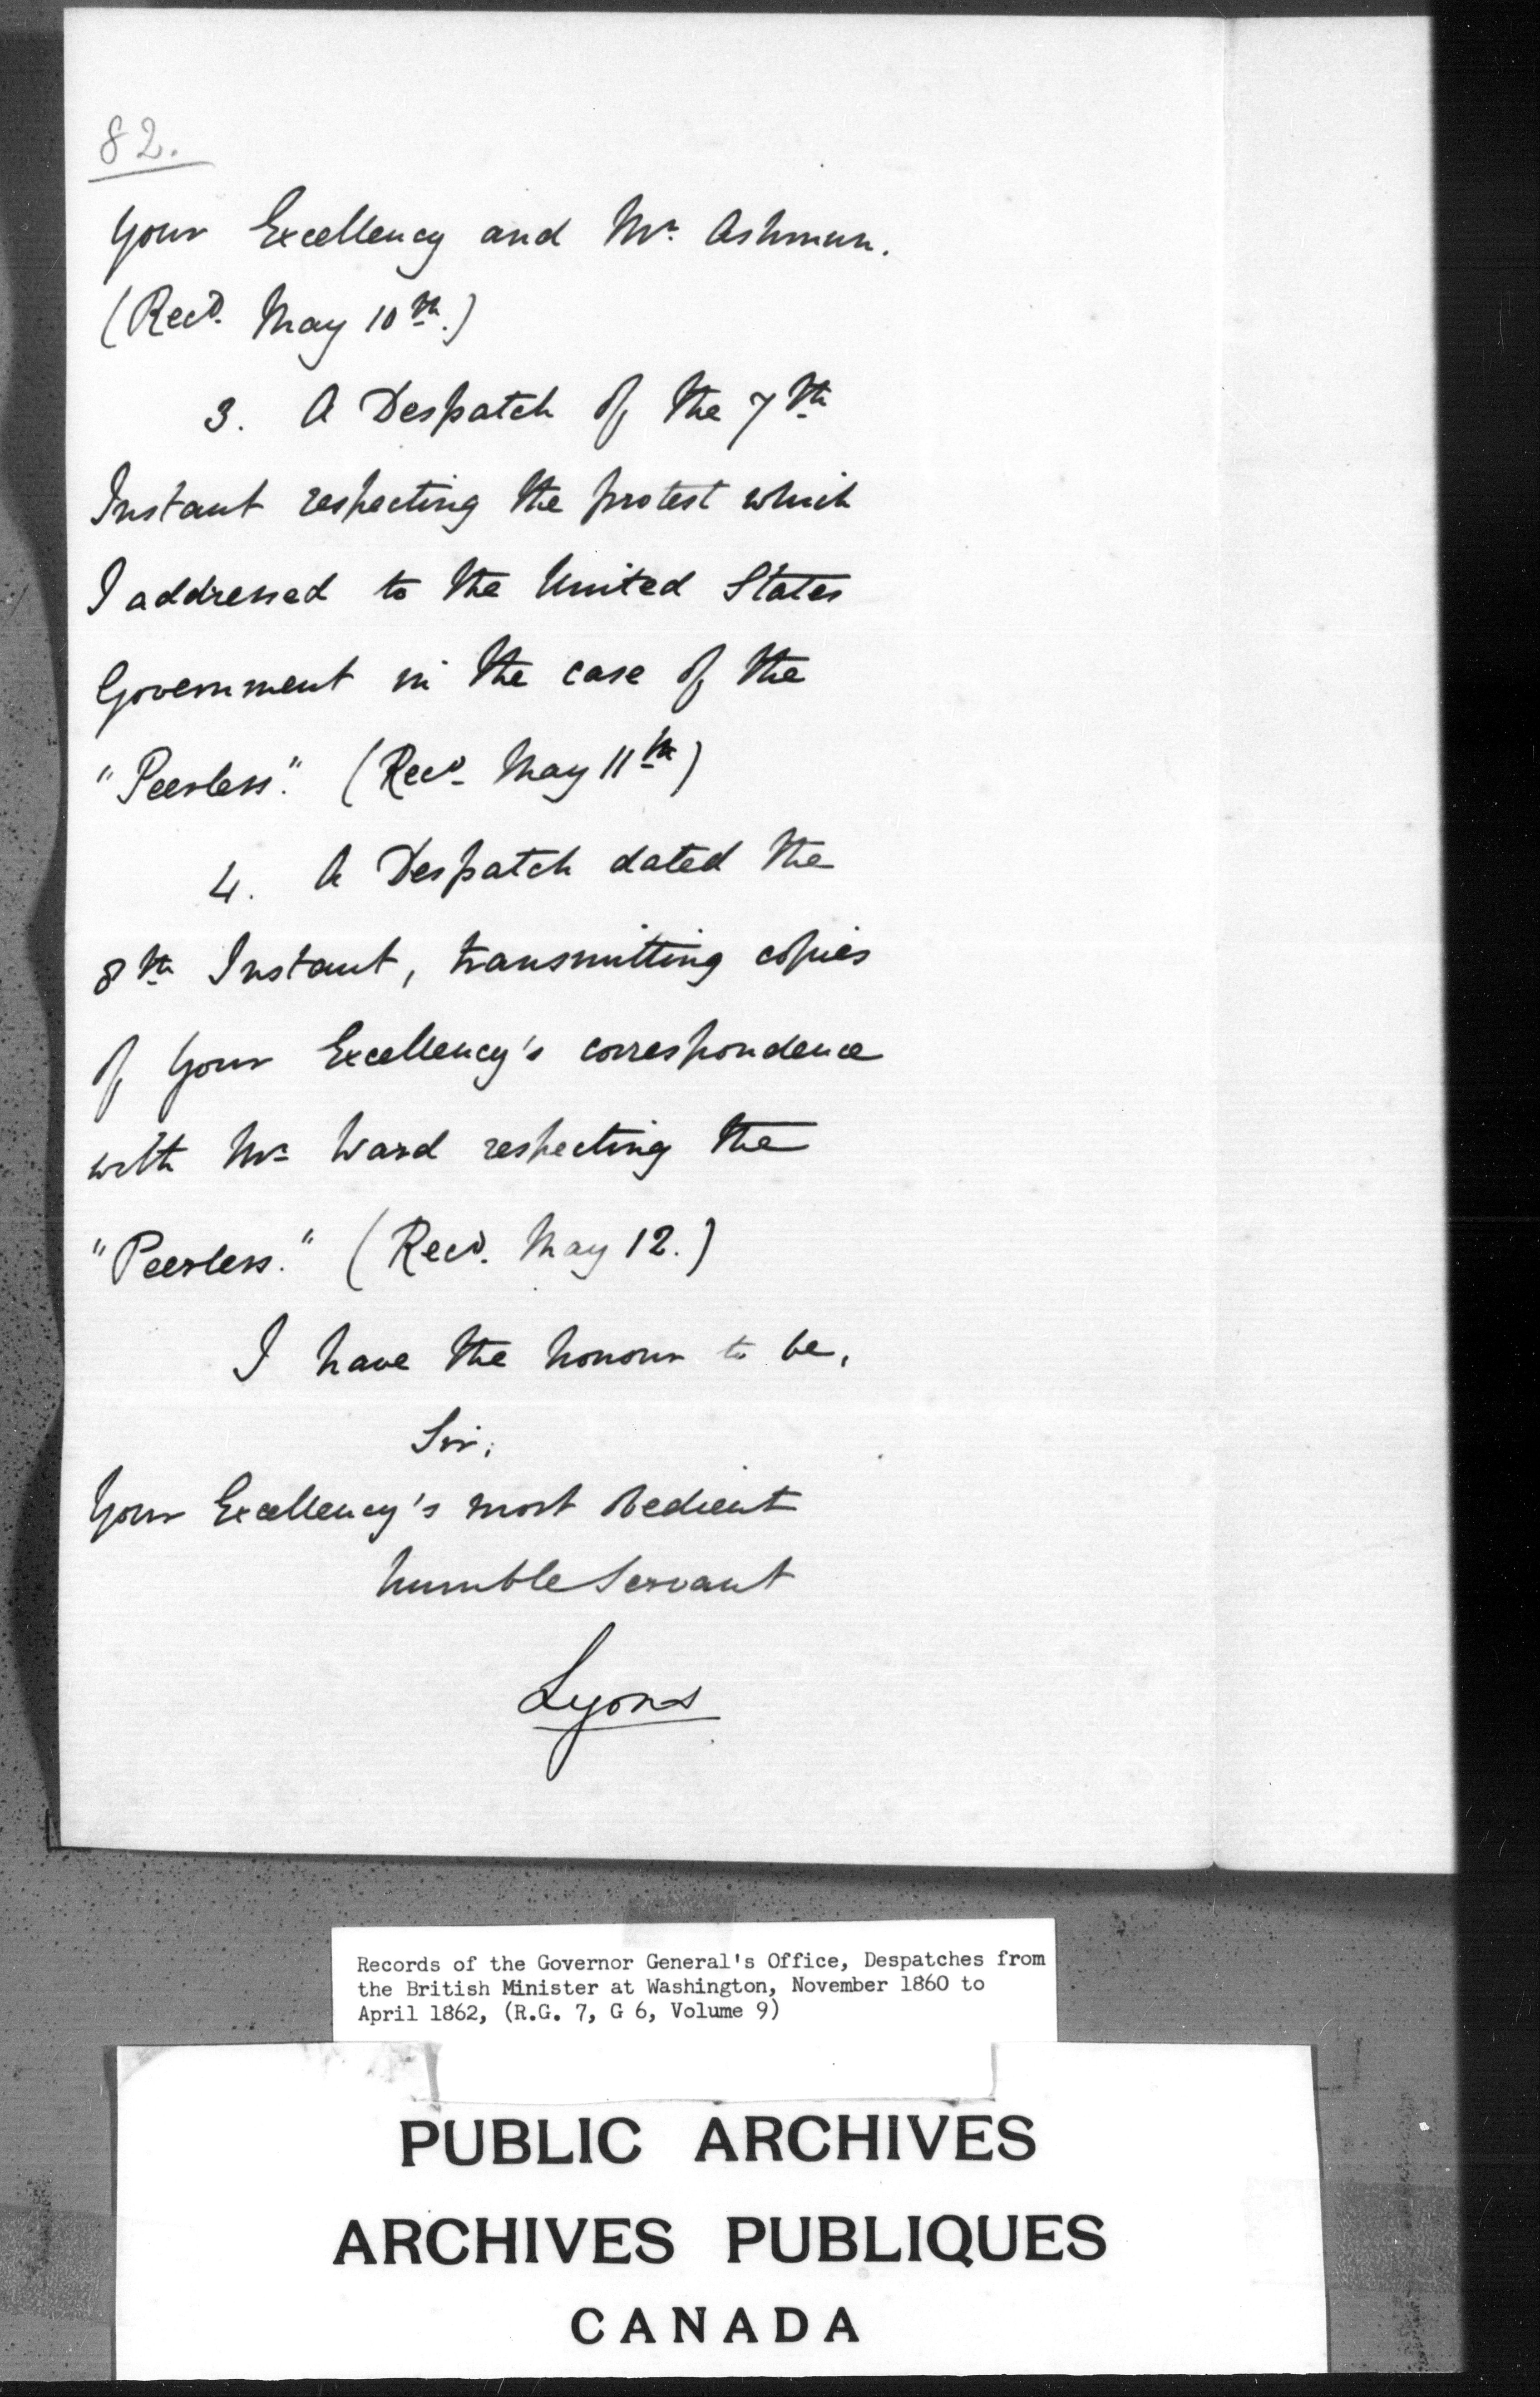 82.
Your Excellency and Mr. Ashmun.
(Recd. May 10th.)
3. A Despatch of the 7th
Instant respecting the protest which
I addressed to the United States
Government in the case of the
"Peerless". (Recd. May 11th)
4. A Despatch dated the
8th Instant, transmitting copies
of Your Excellency's correspondence
with Mr. Ward respecting the
"Peerless." (Recd. May 12.)
I have the honour to be,
Sir,
Your Excellency's most obedient
humble Servant
Lyons
Records of the Governor General's Office, Despatches from
the British Minister at Washington, November 1860 to
April 1862, (R.G. 7, G 6, Volume 9)
PUBLIC ARCHIVES
ARCHIVES PUBLIQUES
CANADA